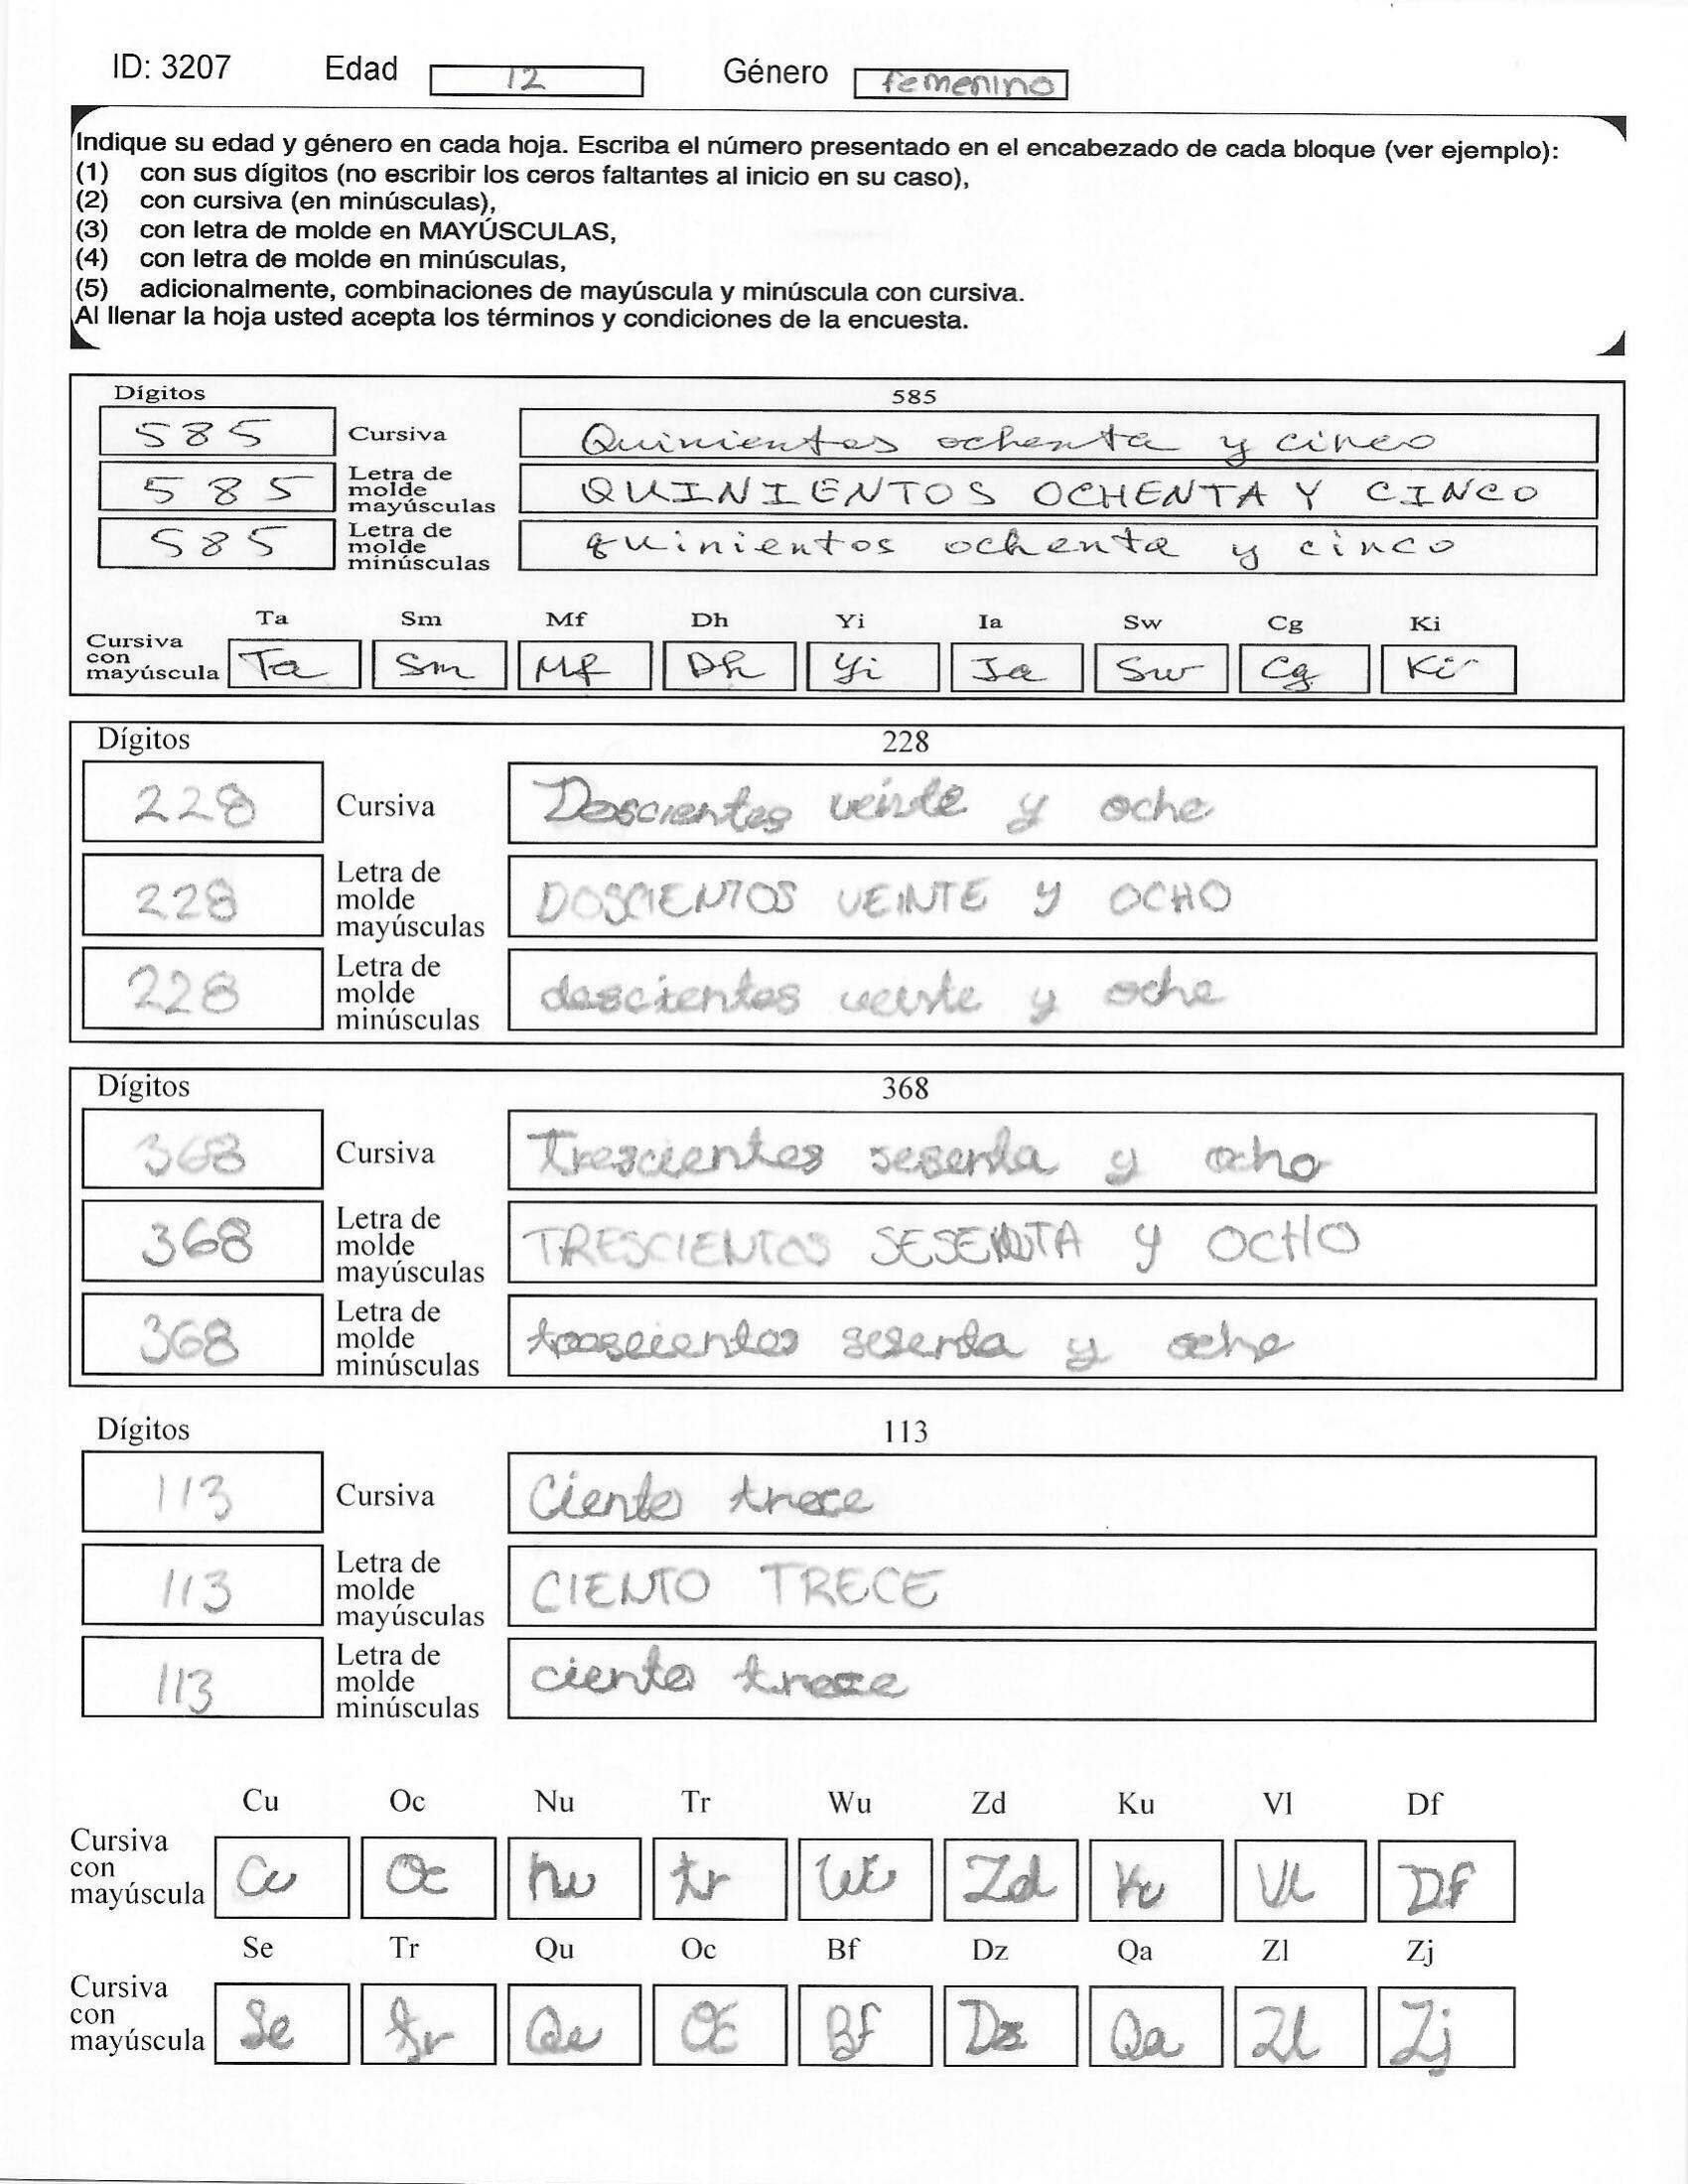 ID: 3207 Edad 12 Género femenino
Indique su edad y género en cada hoja. Escriba el número presentado en el encabezado de cada bloque (ver ejemplo):
(1) con sus dígitos (no escribir los ceros faltantes al inicio en su caso),
(2) con cursiva (en minúsculas),
(3) con letra de molde en MAYÚSCULAS,
(4) con letra de molde en minúsculas,
(5) adicionalmente, combinaciones de mayúscula y minúscula con cursiva.
Al llenar la hoja usted acepta los términos y condiciones de la encuesta.
Dígitos 585
585 Cursiva Quinientos ochenta y cinco
585 Letra de molde mayúsculas QUINIENTOS OCHENTA Y CINCO
585 Letra de molde minúsculas quinientos ochenta y cinco
Ta Sm Mf Dh Yi Ia Sw Cg Ki
Cursiva con mayúscula Ta Sm Mf Dh Yi Ia Sw Cg Ki
Dígitos 228
228 Cursiva Doscientos veinte y ocho
228 Letra de molde mayúsculas DOSCIENTOS VEINTE y OCHO
228 Letra de molde minúsculas doscientos veinte y ocho
Dígitos 368
368 Cursiva Trescientos sesenta y ocho
368 Letra de molde mayúsculas TRESCIENTOS SESENTA y OCHO
368 Letra de molde minúsculas trescientos sesenta y ocho
Dígitos 113
113 Cursiva Ciento trece
113 Letra de molde mayúsculas CIENTO TRECE
113 Letra de molde minúsculas ciento trece
Cu Oc Nu Tr Wu Zd Ku Vl Df
Cursiva con mayúscula Cu Oc Nu tr Wu Zd Ku Vl Df
Se Tr Qu Oc Bf Dz Qa Zl Zj
Cursiva con mayúscula Se tr Qu Oc Bf Dz Qa Zl Zj